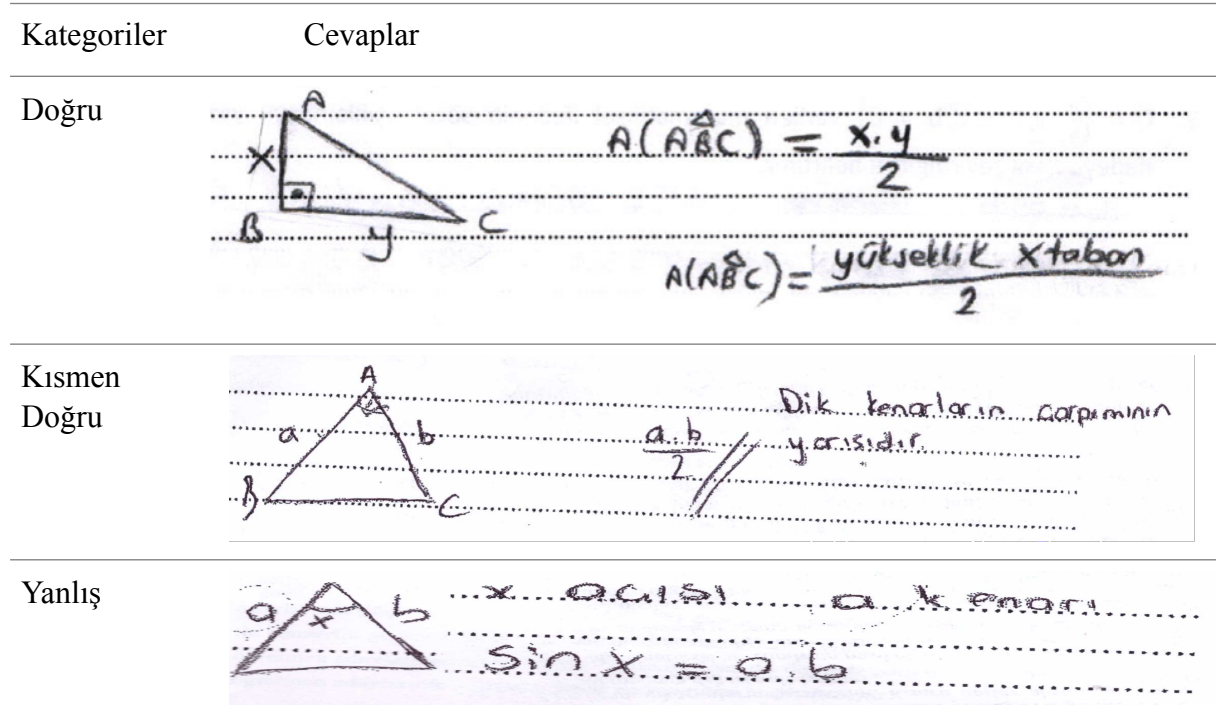 Kategoriler Cevaplar
Doğru
A
x
B
y
C
A(ABC) = x.y / 2
A(ABC) = yükseklik x taban / 2
Kısmen
Doğru
A
a
b
B
C
a.b / 2
Dik kenarların çarpımının
yarısıdır.
Yanlış
a
x
b
x açısı a kenarı
sin x = a.b